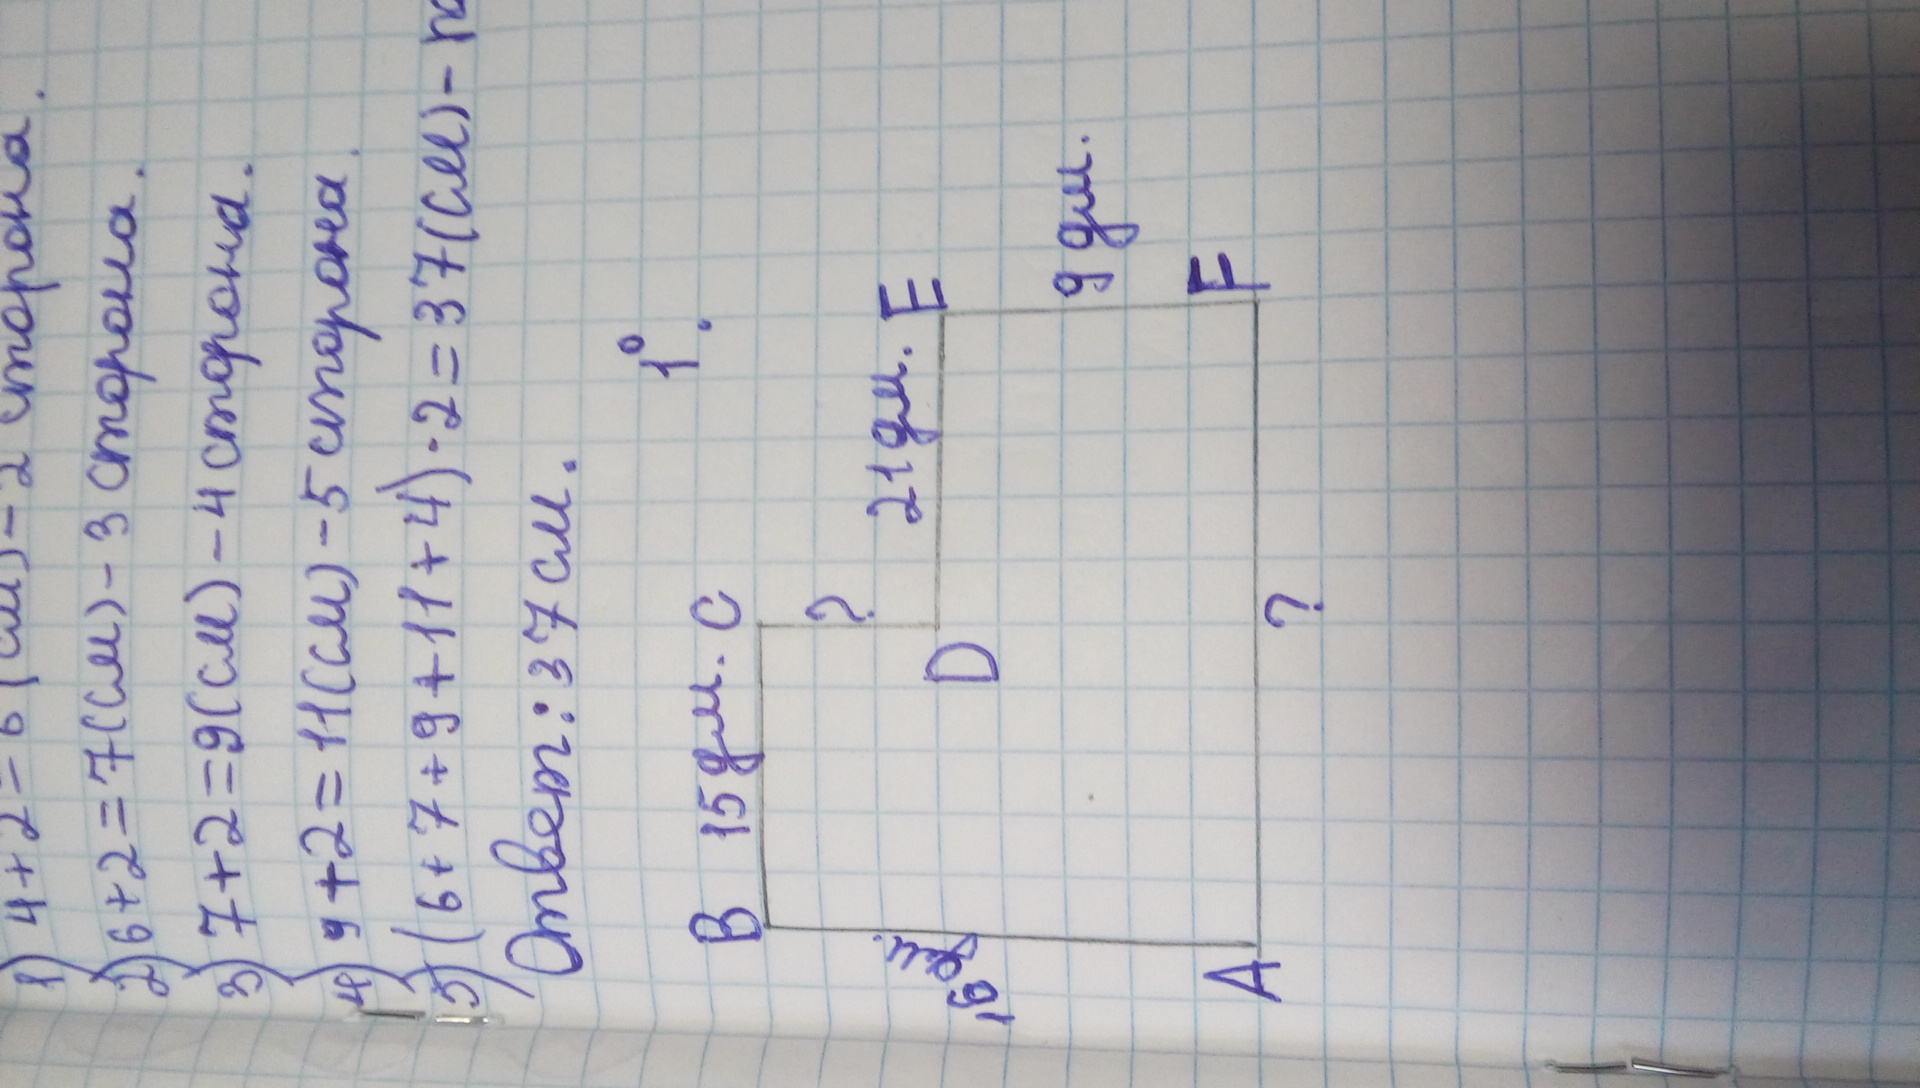 1) 4+2=6(см)-2 сторона.
2) 6+2=7(см)-3 сторона.
3) 7+2=9(см)-4 сторона.
4) 9+2=11(см)-5 сторона.
5) (6+7+9+11+4)·2=37(см)-
Ответ: 37 см.
1°.
B 15 дм. C
?
21 дм. E
D
16 дм.
9 дм.
A
?
F